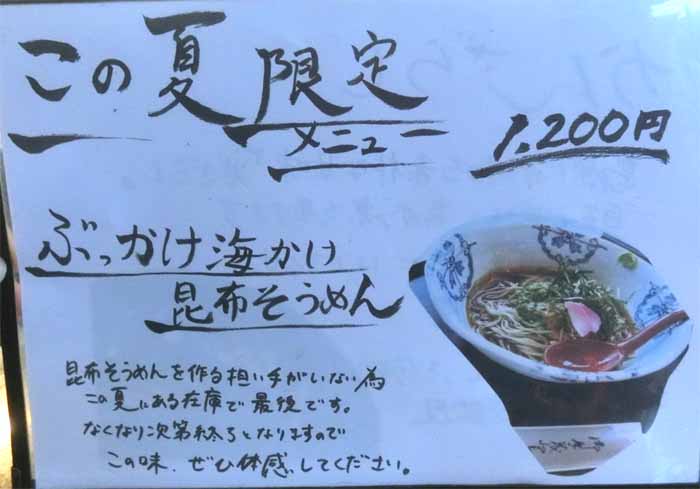 この夏限定
メニュー
1,200円
ぶっかけ海かけ
昆布そうめん
昆布そうめんを作る担い手がいない為
この夏にある在庫で最後です。
なくなり次第終了となりますので
この味、ぜひ体感してください。